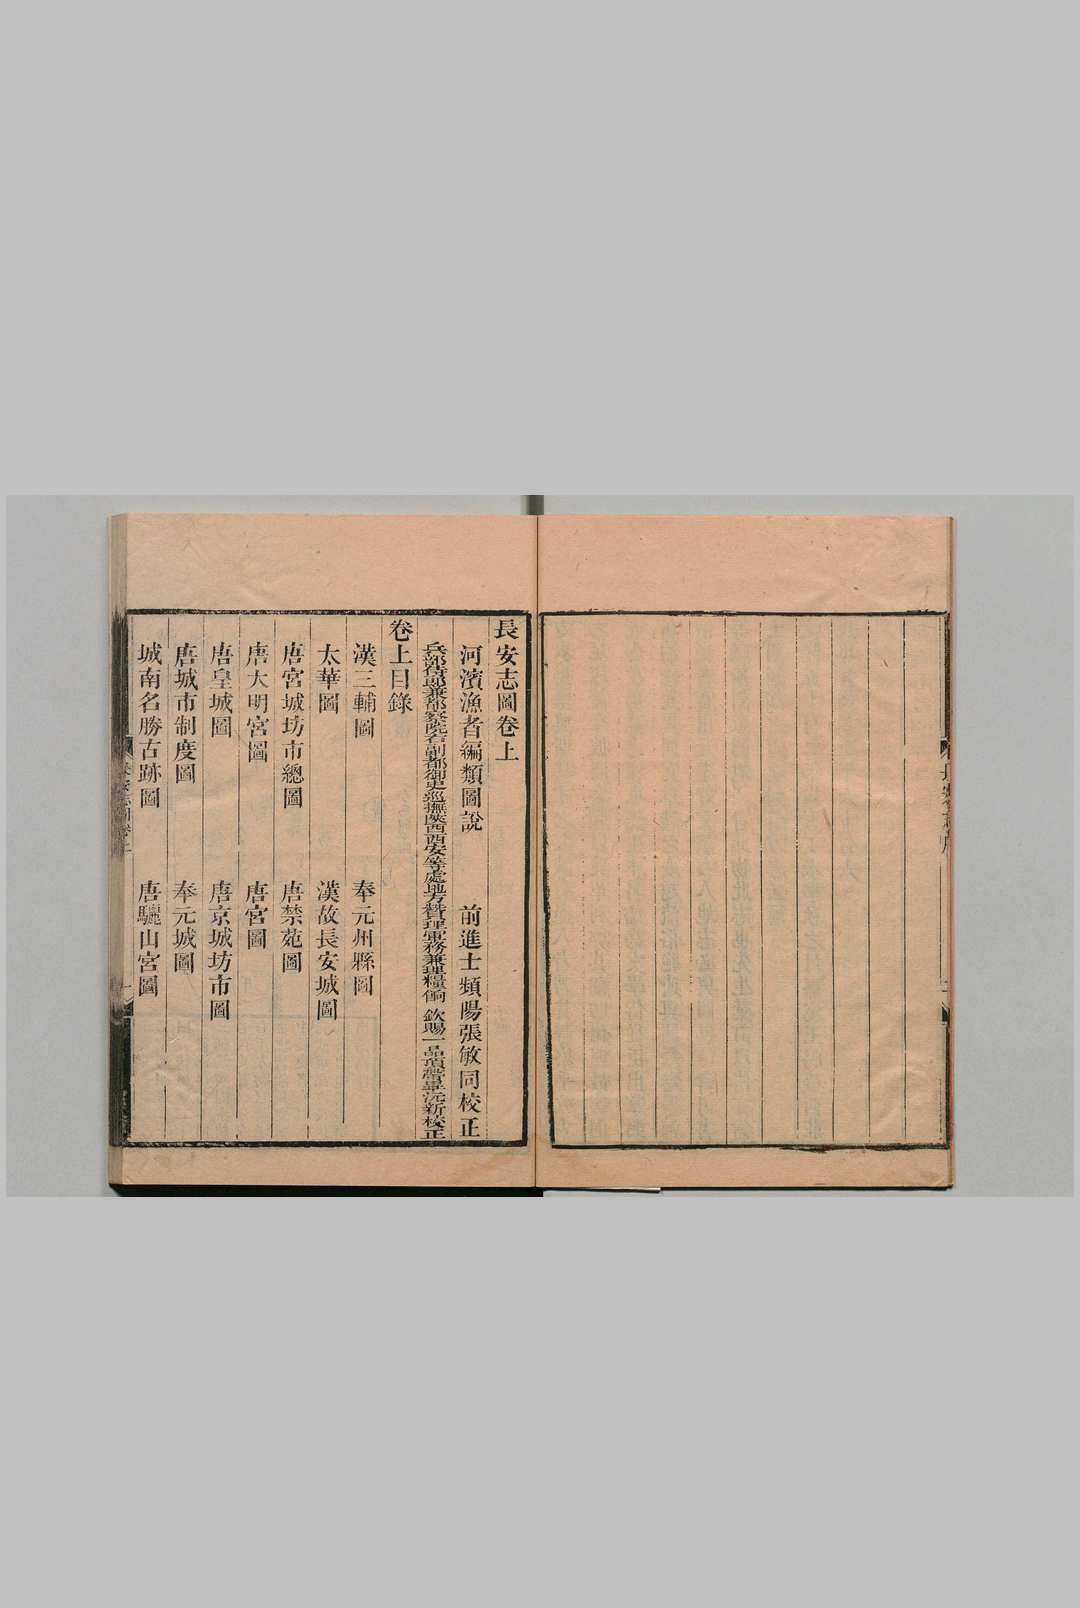 長安志圖卷上
河濱漁者編類圖說　前進士頻陽張敏同校正
兵部侍郎兼都察院右副都御史巡撫陝西西安等處地方贊理軍務兼理糧餉　欽賜一品頂帶畢沅新校正
卷上目錄
漢三輔圖　奉元州縣圖
太華圖　漢故長安城圖
唐宮城坊市總圖　唐禁苑圖
唐大明宮圖　唐宮圖
唐皇城圖　唐京城坊市圖
唐城市制度圖　奉元城圖
城南名勝古跡圖　唐驪山宮圖